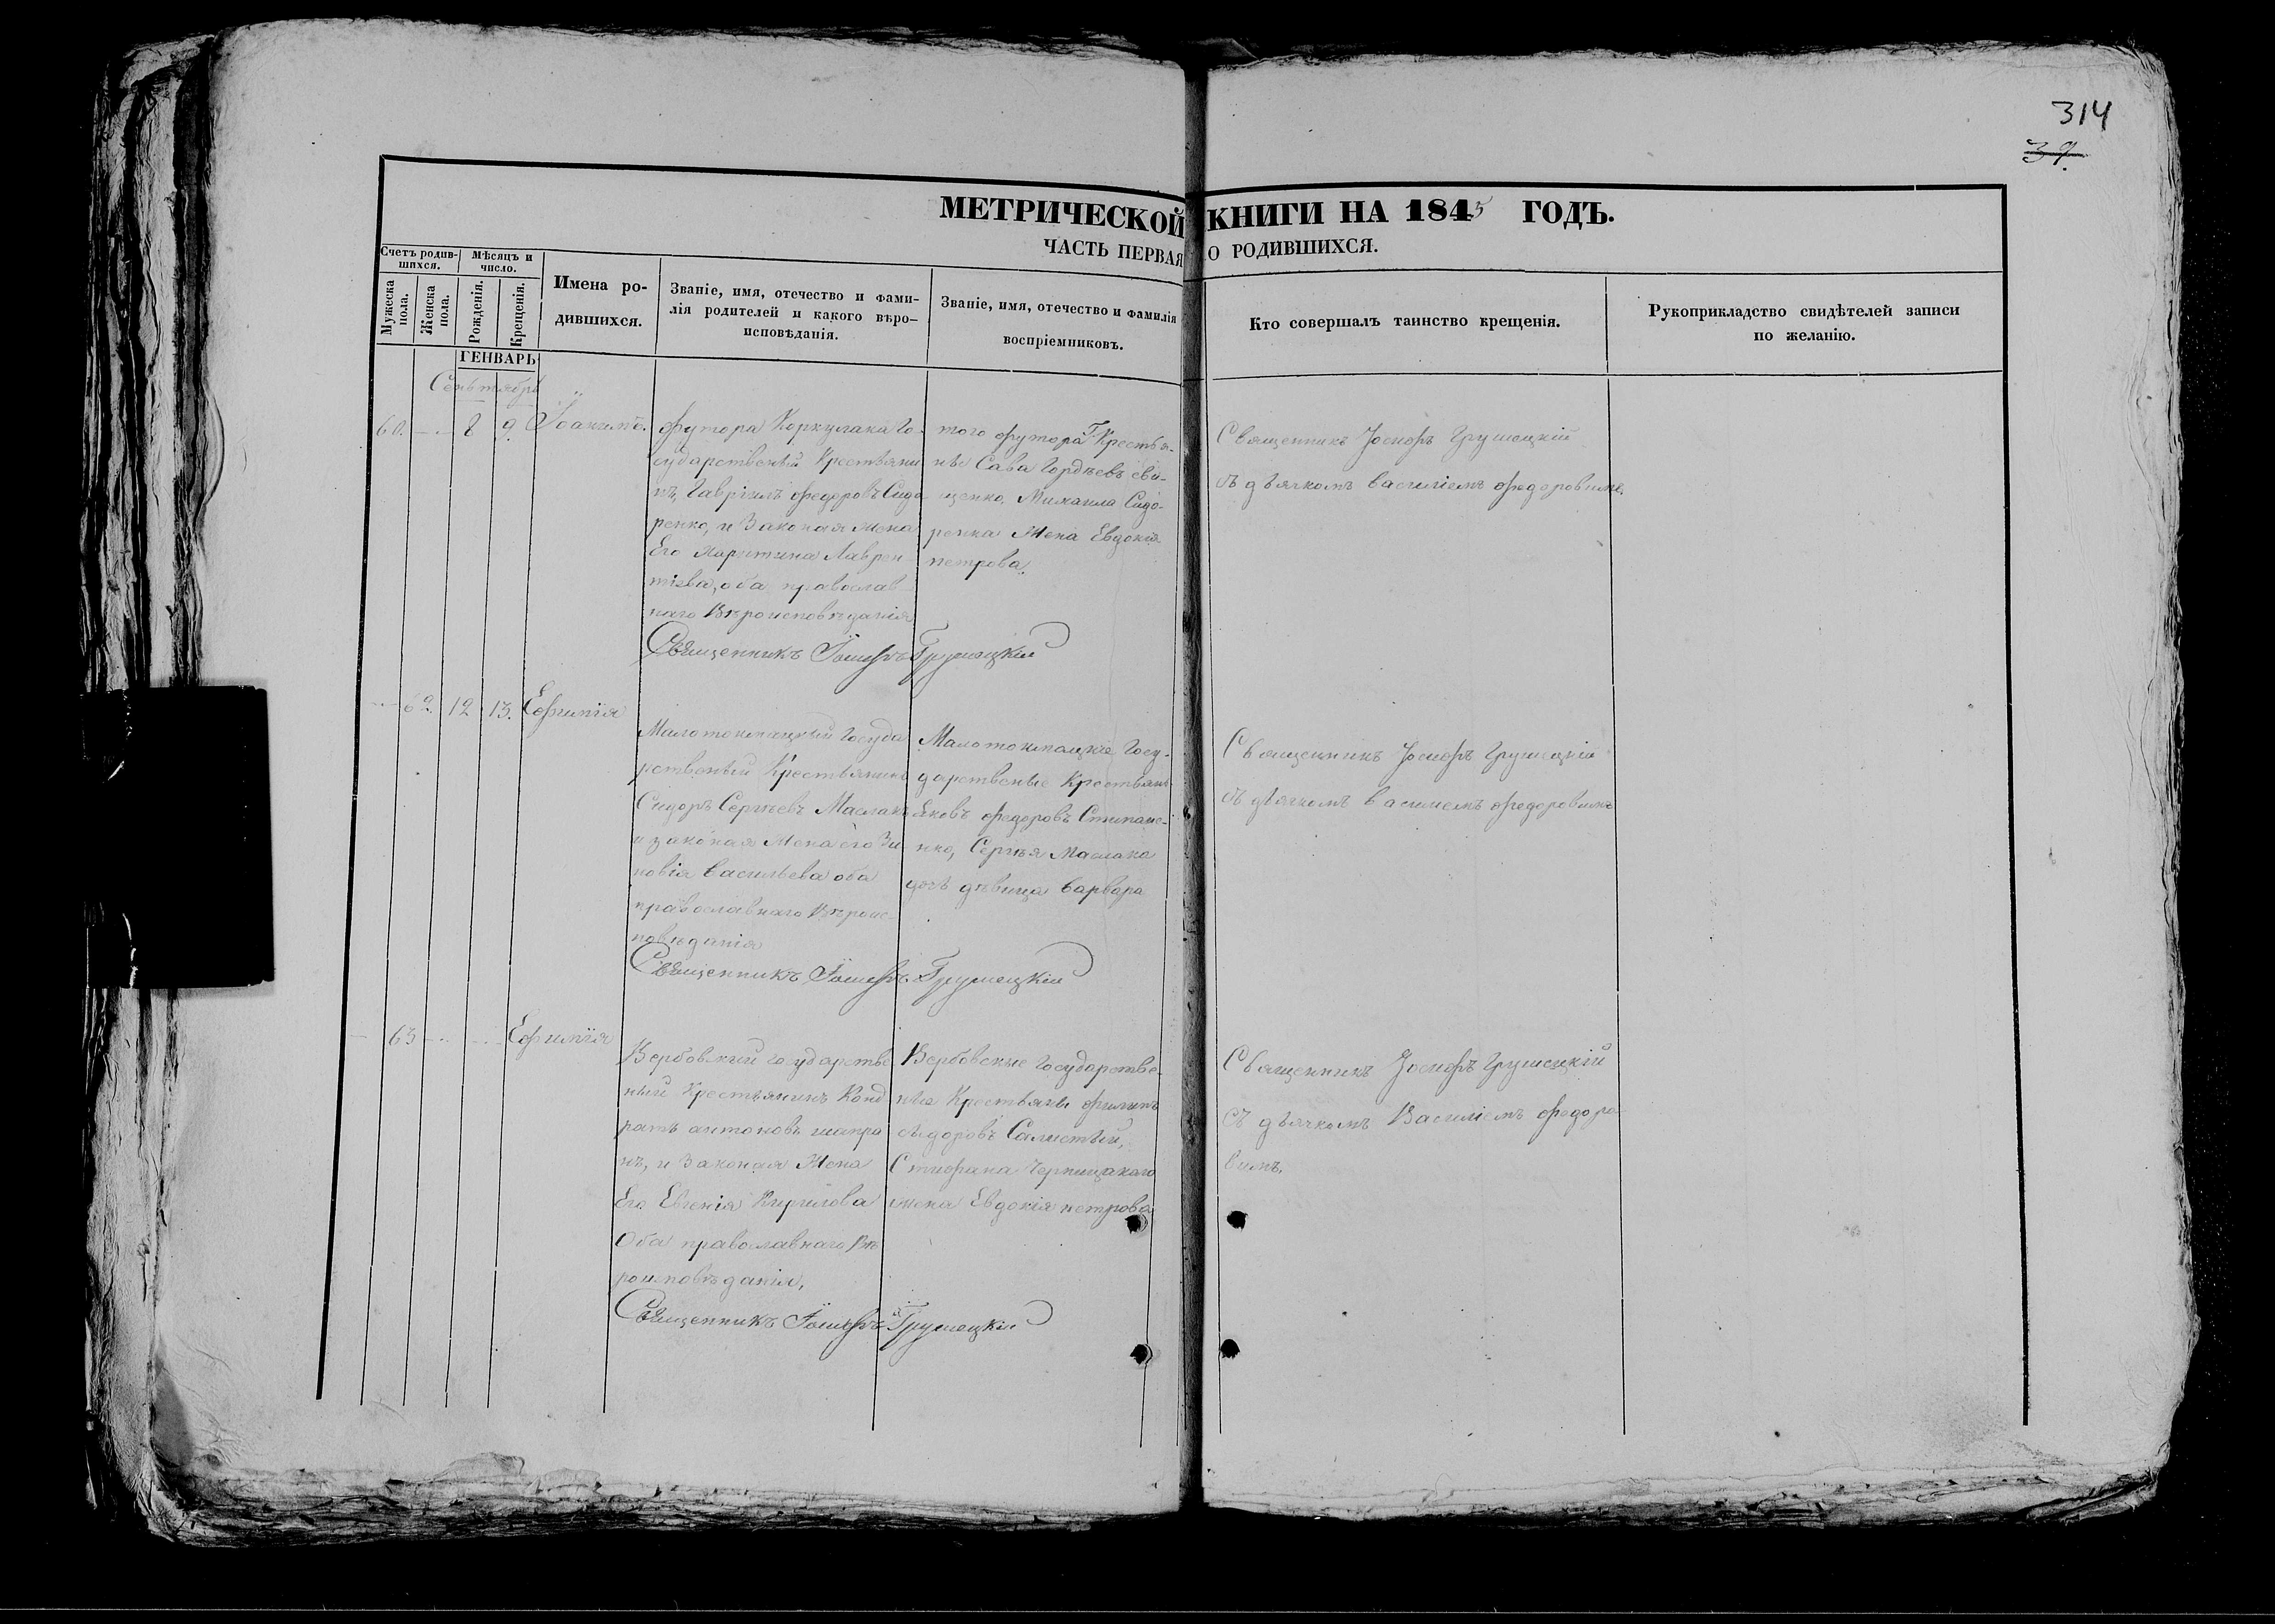 314
39.
МЕТРИЧЕСКОЙ КНИГИ НА 1845 ГОДЪ.
ЧАСТЬ ПЕРВАЯ О РОДИВШИХСЯ.
Счетъ родив-
шихся.
Мужеска пола.
Женска пола.
Мѣсяцъ и
число.
Рожденія.
Крещенія.
Имена ро-
дившихся.
Званіе, имя, отечество и фами-
лія родителей и какого вѣро-
исповѣданія.
Званіе, имя, отечество и фамилія
воспріемниковъ.
Кто совершалъ таинство крещенія.
Рукоприкладство свидѣтелей записи
по желанію.
ГЕНВАРЬ
Сентябрь
60. 8 9.
футора Коркулака Го-
сударственый Крестьяни
нъ, Гавріилъ федоровъ Сидо
ренко, и Законая жена
Его Харитина Лаврен
тіева, оба православ
наго Вѣроисповѣданія
того футора Крестья-
не Сава Гордѣевъ
Михаила Сидо-
ренка Жена Евдокія
петрова.
Священникъ Іосифъ Грушецкій
съ дьячкомъ василіемъ федоровимъ.
Священникъ Іосифъ Грушецкій
62. 12 13. Ефимія
Малотокмацкий Госуда
рственый Крестьянинъ
Сидоръ Сергѣевъ Маслакъ
и законая Жена его Зи
новія васильева оба
православнаго Вѣроис-
повѣданія
Малотокмацкіе Госу-
дарственые Крестьяне
Яковъ федоровъ
нко, Сергѣя Маслака
дочь дѣвица варвара
Священникъ Іосифъ Грушецкій
съ дьячкомъ василіемъ федоровимъ
Священникъ Іосифъ Грушецкій
63 Ефимія
Вербовский государстве
ный Крестьянинъ Конд
ратъ антоновъ
нъ, и Законая Жена
Его Евгенія Кирилова
Оба православнаго Вѣ
роисповѣданія,
Вербовские Государстве-
ные Крестьяне филипъ
Стефана
жена Евдокія петрова
Священникъ Іосифъ Грушецкій
съ дьячкомъ Василіемъ федоро
вимъ.
Священникъ Іосифъ Грушецкій